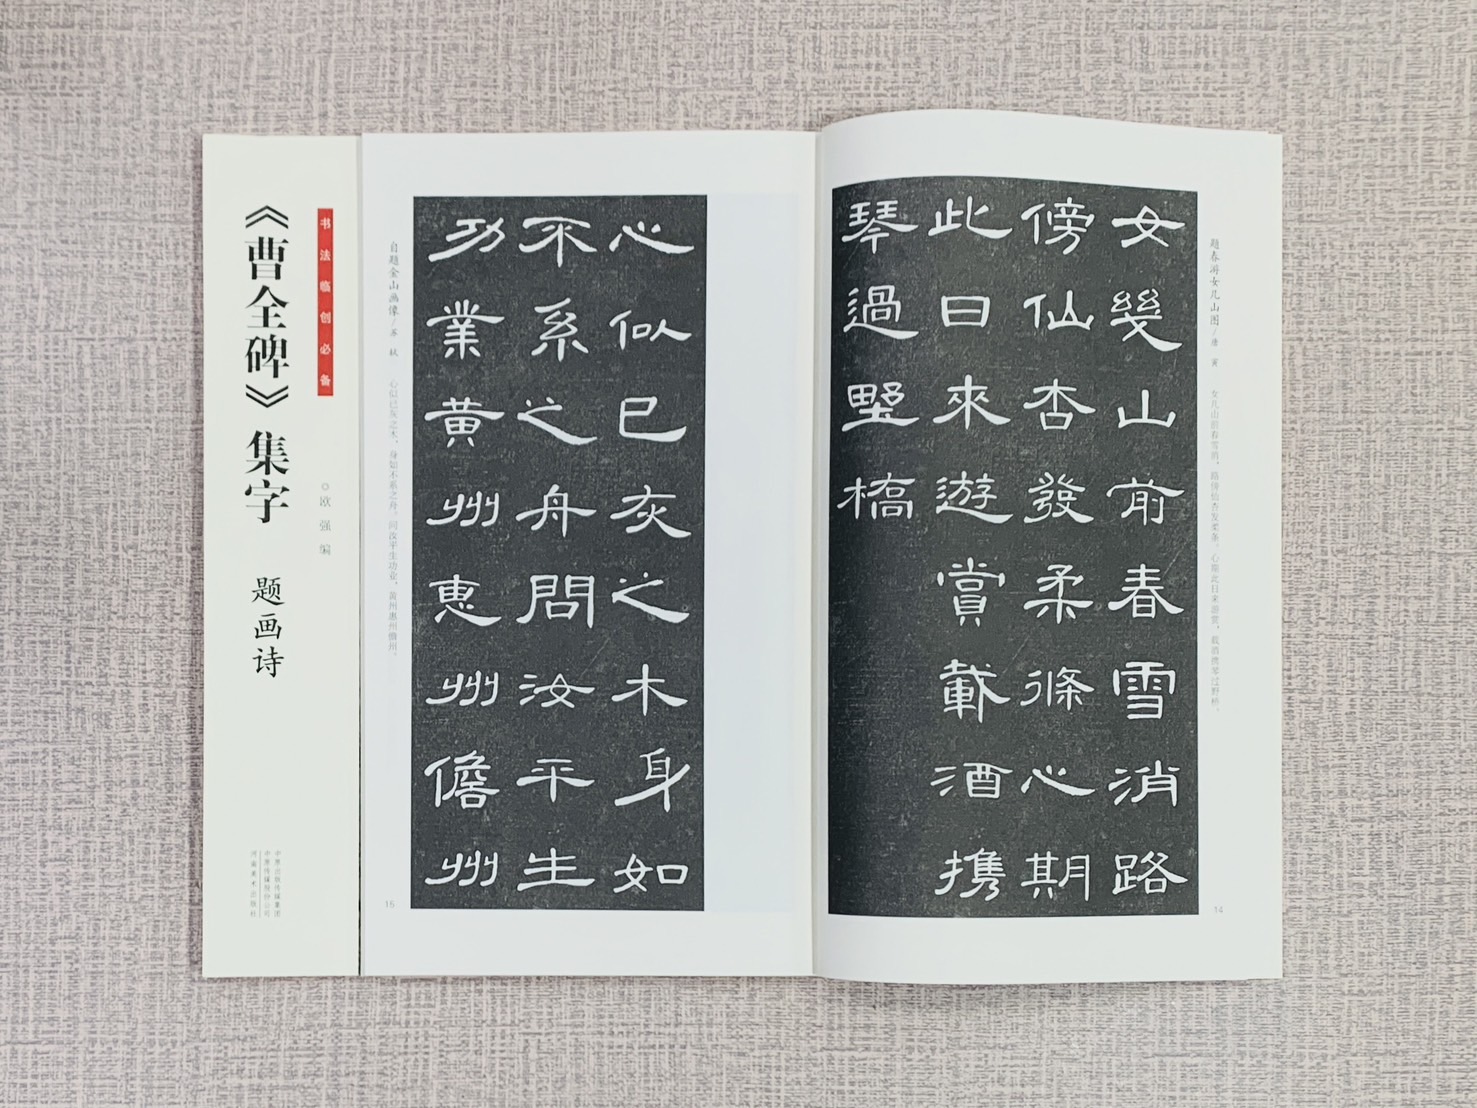 题春游女几山图/唐 寅 女几山前春雪消，路傍仙杏发柔条。心期此日来游赏，载酒携琴过野桥。
女幾山前春雪消路
傍仙杏發柔條心期
此日來遊賞載酒携
琴過野橋
14
心似已灰之木身如
不系之舟問汝平生
功業黄州惠州儋州
自题金山画像/苏 轼 心似已灰之木，身如不系之舟。问汝平生功业，黄州惠州儋州。
16
书法临创必备
◎欧强 编
《曹全碑》集字 题画诗
中原出版传媒集团
中原传媒股份公司
河南美术出版社